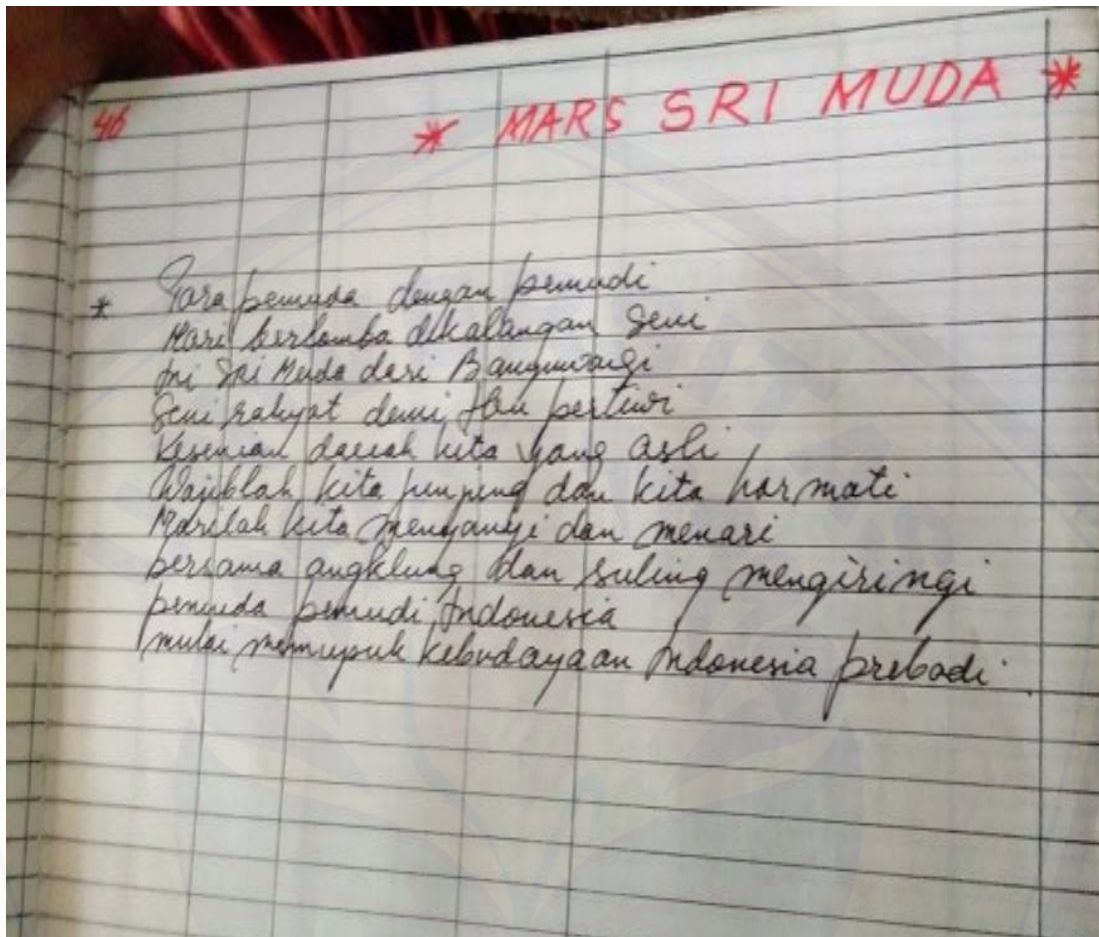 46
* MARS SRI MUDA *
* Para pemuda dengan pemudi
Mari berlomba dikalangan seni
Ini Sri Muda dari Banyuwangi
Seni rakyat demi Ibu pertiwi
Kesenian daerah kita yang asli
Wajiblah kita junjung dan kita hormati
Marilah kita menyanyi dan menari
bersama angklung dan suling mengiringi
pemuda pemudi Indonesia
mulai memupuk kebudayaan Indonesia prebadi